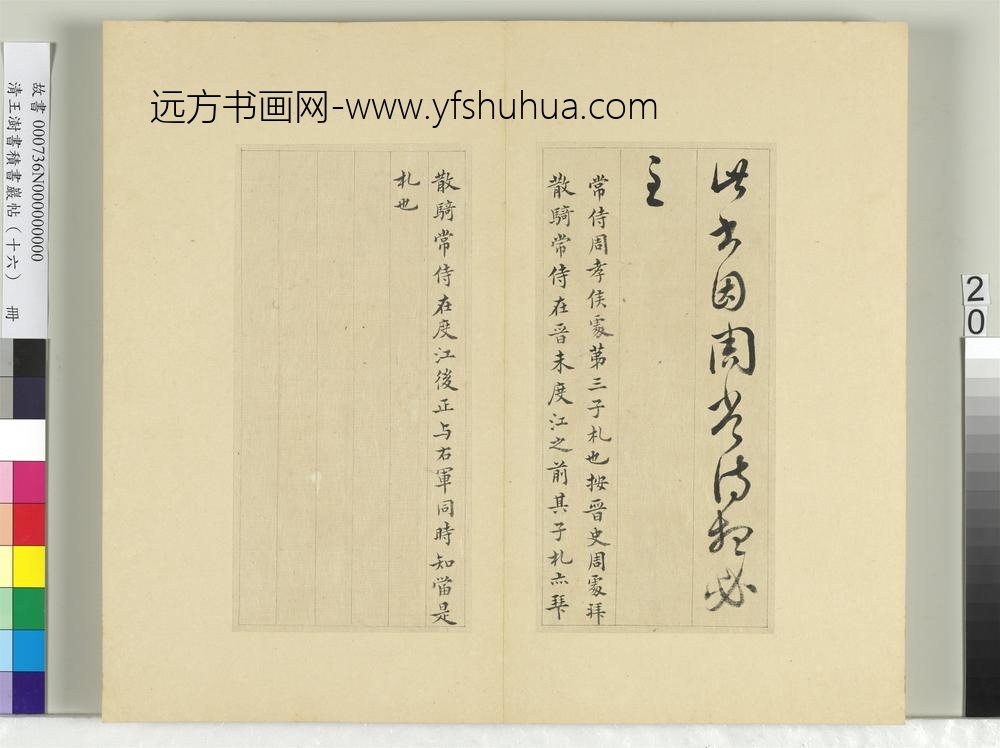 远方书画网-www.yfshuhua.com
此書因周常侍想必
至
常侍周孝侯䖏苐三子札也按晉史周䖏拜
散騎常侍在晋未度江之前其子札亦拜
散騎常侍在度江後正与右軍同時知當是
札也
故書 000736N000000000
清王澍書積書巖帖（十六） 冊
20